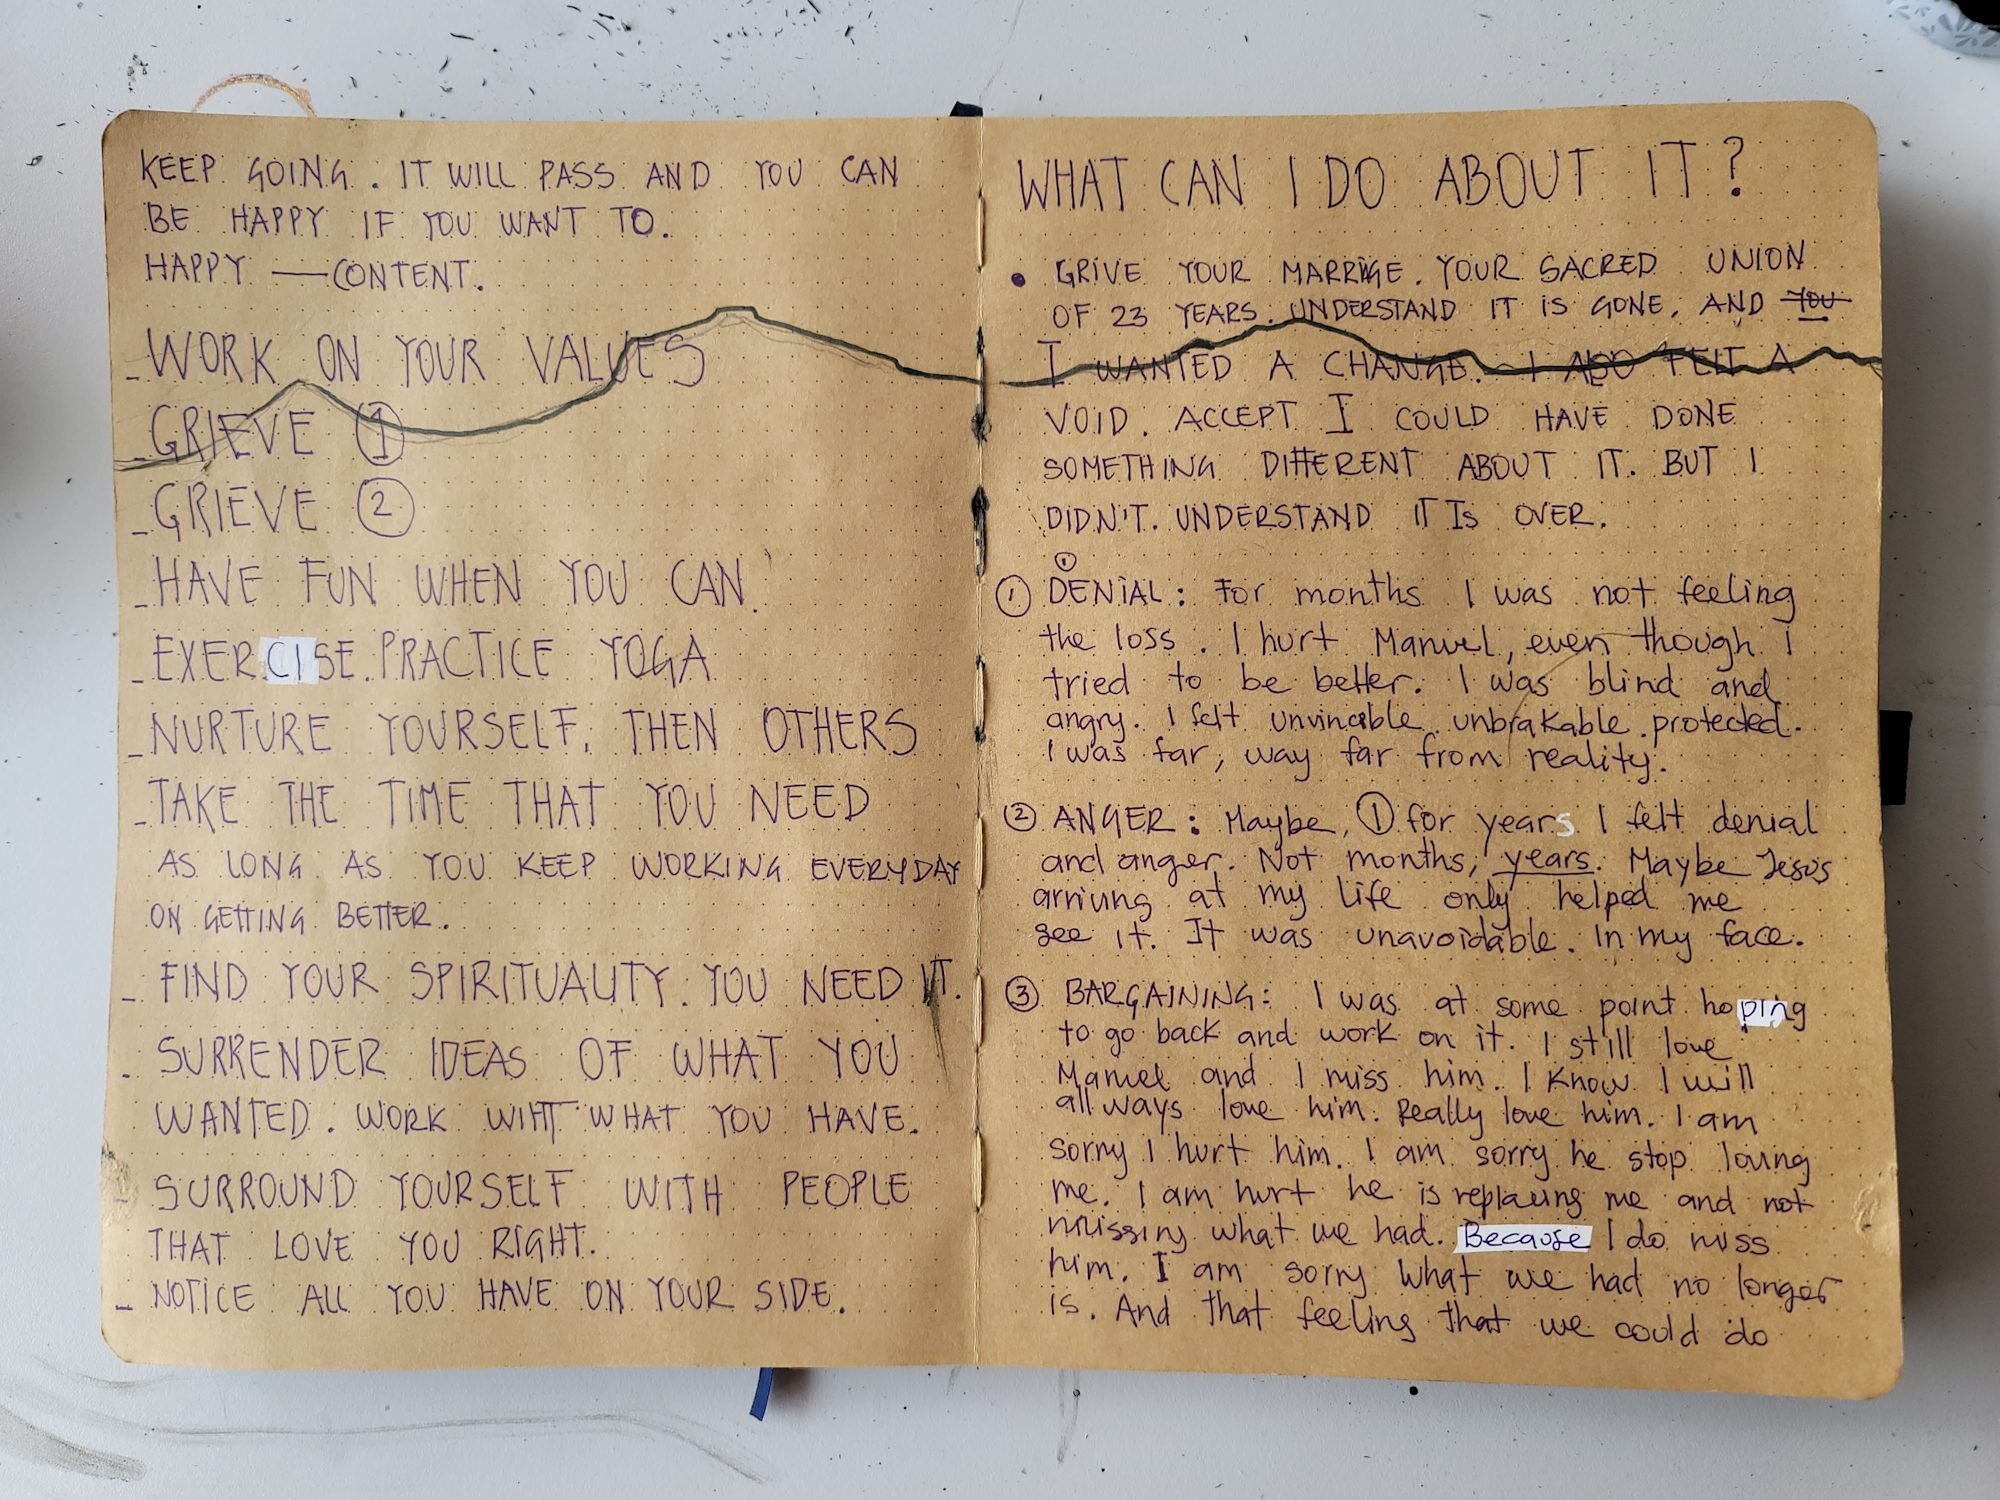 KEEP GOING. IT WILL PASS AND YOU CAN
BE HAPPY IF YOU WANT TO.
HAPPY — CONTENT.
- WORK ON YOUR VALUES
- GRIEVE ①
- GRIEVE ②
- HAVE FUN WHEN YOU CAN.
- EXERCISE. PRACTICE YOGA
- NURTURE YOURSELF, THEN OTHERS
- TAKE THE TIME THAT YOU NEED
AS LONG AS YOU KEEP WORKING EVERYDAY
ON GETTING BETTER.
- FIND YOUR SPIRITUALITY. YOU NEED IT.
- SURRENDER IDEAS OF WHAT YOU
WANTED. WORK WIHT WHAT YOU HAVE.
- SURROUND YOURSELF WITH PEOPLE
THAT LOVE YOU RIGHT.
- NOTICE ALL YOU HAVE ON YOUR SIDE.
WHAT CAN I DO ABOUT IT?
• GRIVE YOUR MARRIGE. YOUR SACRED UNION
OF 23 YEARS. UNDERSTAND IT IS GONE. AND YOU
I WANTED A CHANGE. I ALSO FELT A
VOID. ACCEPT I COULD HAVE DONE
SOMETHING DIFFERENT ABOUT IT. BUT I
DIDN'T. UNDERSTAND IT IS OVER.
①
① DENIAL: For months I was not feeling
the loss. I hurt Manuel, even though I
tried to be better. I was blind and
angry. I felt unvincible unbrakable protected.
I was far, way far from reality.
② ANGER: Maybe, ① for years I felt denial
and anger. Not months, years. Maybe Jesús
arriving at my life only helped me
see it. It was unavoidable. In my face.
③ BARGAINING: I was at some point hoping
to go back and work on it. I still love
Manuel and I miss him. I know I will
all ways love him. Really love him. I am
sorry I hurt him. I am sorry he stop loving
me. I am hurt he is replacing me and not
missing what we had. Because I do miss
him. I am sorry what we had no longer
is. And that feeling that we could do